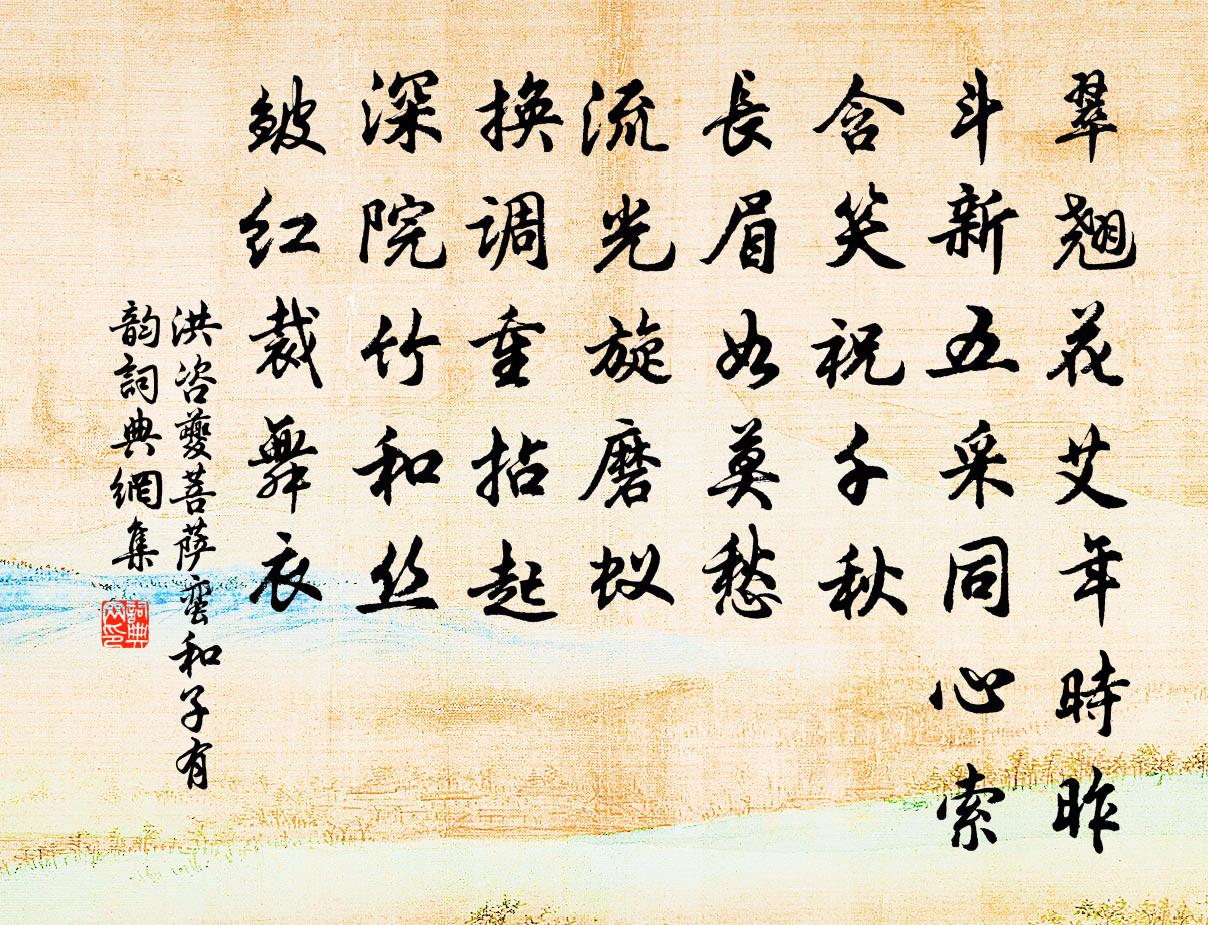 翠翹花艾年時昨
斗新五采同心索
含笑祝千秋
長眉如莫愁
流光旋磨蚁
换调重拈起
深院竹和丝
皱红裁舞衣
洪咨夔菩萨蛮和子有
韵詞典網集
詞典
网印